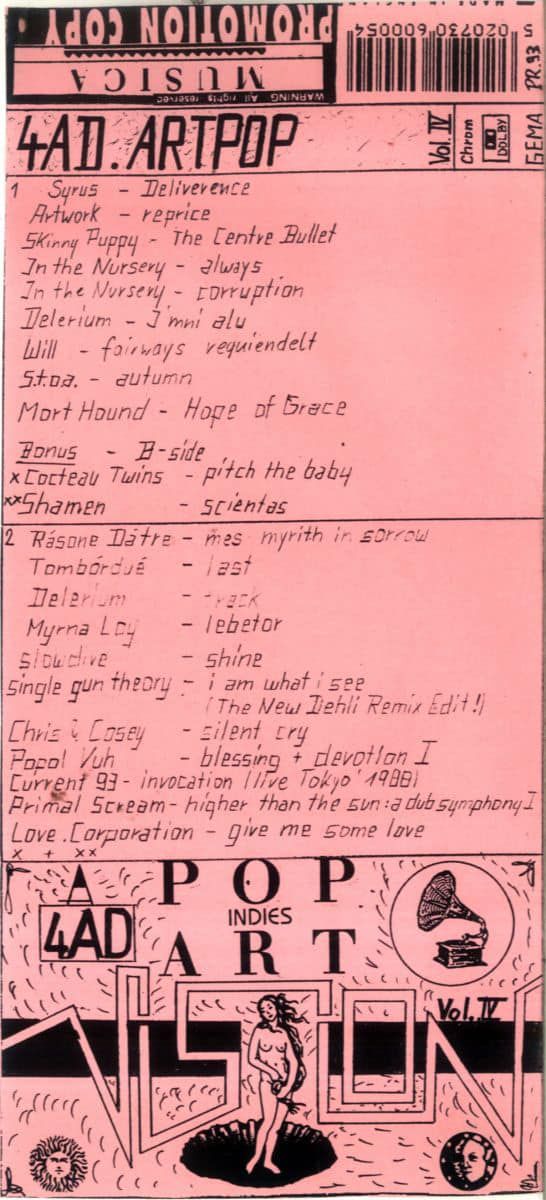 PROMOTION COPY.
MUSICA
WARNING All rights reserved
5 020730 600054
PR.93
GEMA
4AD.ARTPOP
Vol.IV
Chrom
DOLBY
1 Syrus - Deliverence
Artwork - reprice
Skinny Puppy - The Centre Bullet
In the Nursery - always
In the Nursery - corruption
Delerium - I'mni alu
Will - fairways requiendelt
S.t.o.a. - autumn
Mort Hound - Hope of Grace
Bonus - B-side
x Cocteau Twins - pitch the baby
xx Shamen - scientas
2 Rásone Dátre - mes myrith in sorrow
Tombórdué - last
Delerium - track
Myrna Loy - lebetor
slowdive - shine
single gun theory - i am what i see
(The New Dehli Remix Edit!)
Chris & Cosey - silent cry
Popol Vuh - blessing + devotion I
Current 93 - invocation (live Tokyo' 1988)
Primal Scream - higher than the sun: a dub symphony I
Love.Corporation - give me some love
x + xx
A POP
4AD INDIES
ART
VISION
Vol.IV